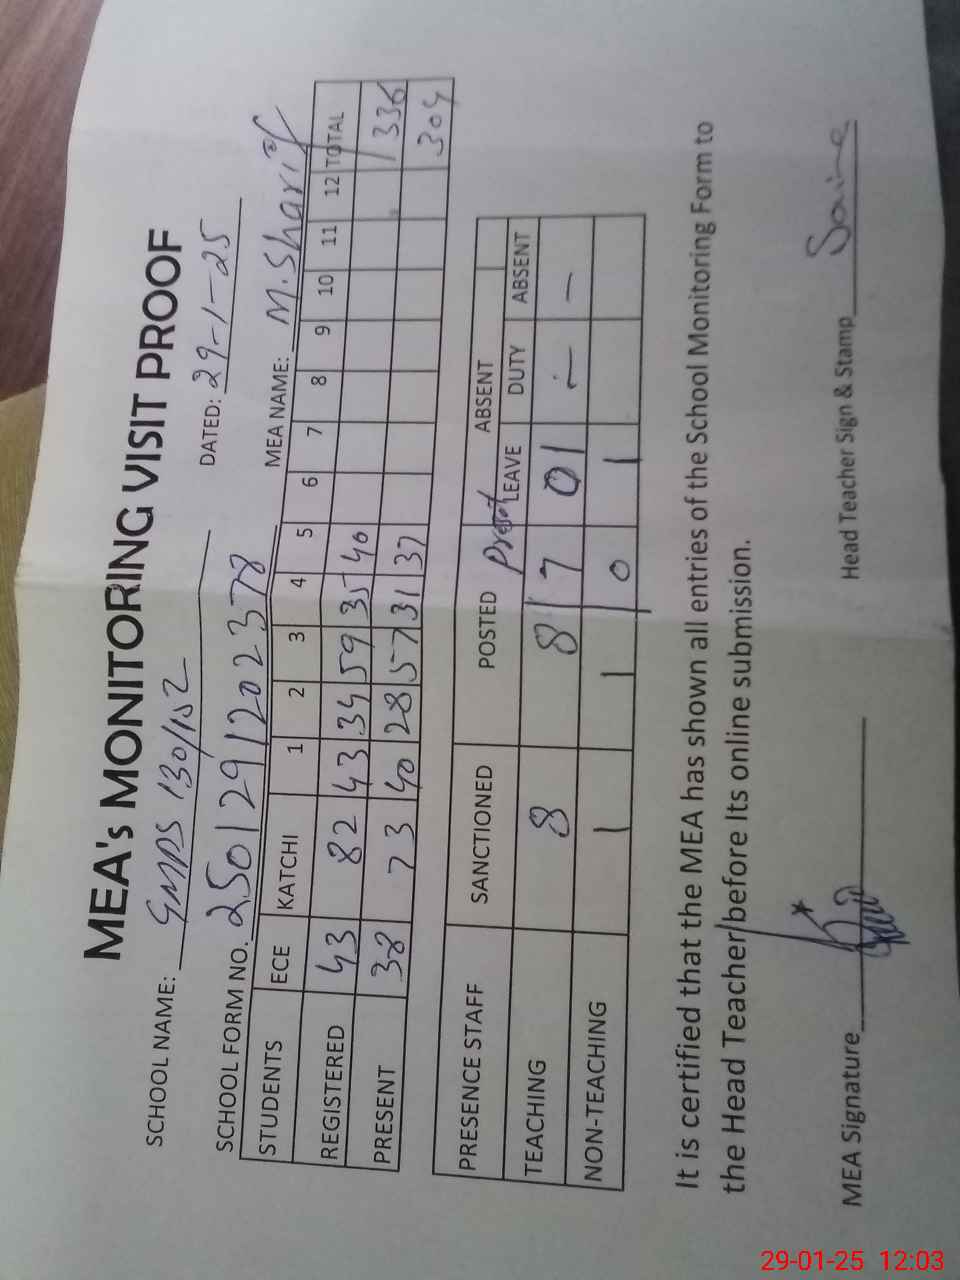 MEA's MONITORING VISIT PROOF
SCHOOL NAME: GMPS 130/15L DATED: 29-1-25
SCHOOL FORM NO. 2501291202378 MEA NAME: M.Sharif
STUDENTS ECE KATCHI 1 2 3 4 5 6 7 8 9 10 11 12 TOTAL
REGISTERED 43 82 43 34 59 35 40 336
PRESENT 38 73 40 28 57 31 37 304
PRESENCE STAFF SANCTIONED POSTED Present ABSENT
LEAVE DUTY ABSENT
TEACHING 8 8 7 01 - -
NON-TEACHING 1 1 0 1
It is certified that the MEA has shown all entries of the School Monitoring Form to
the Head Teacher before Its online submission.
MEA Signature Head Teacher Sign & Stamp
29-01-25 12:03